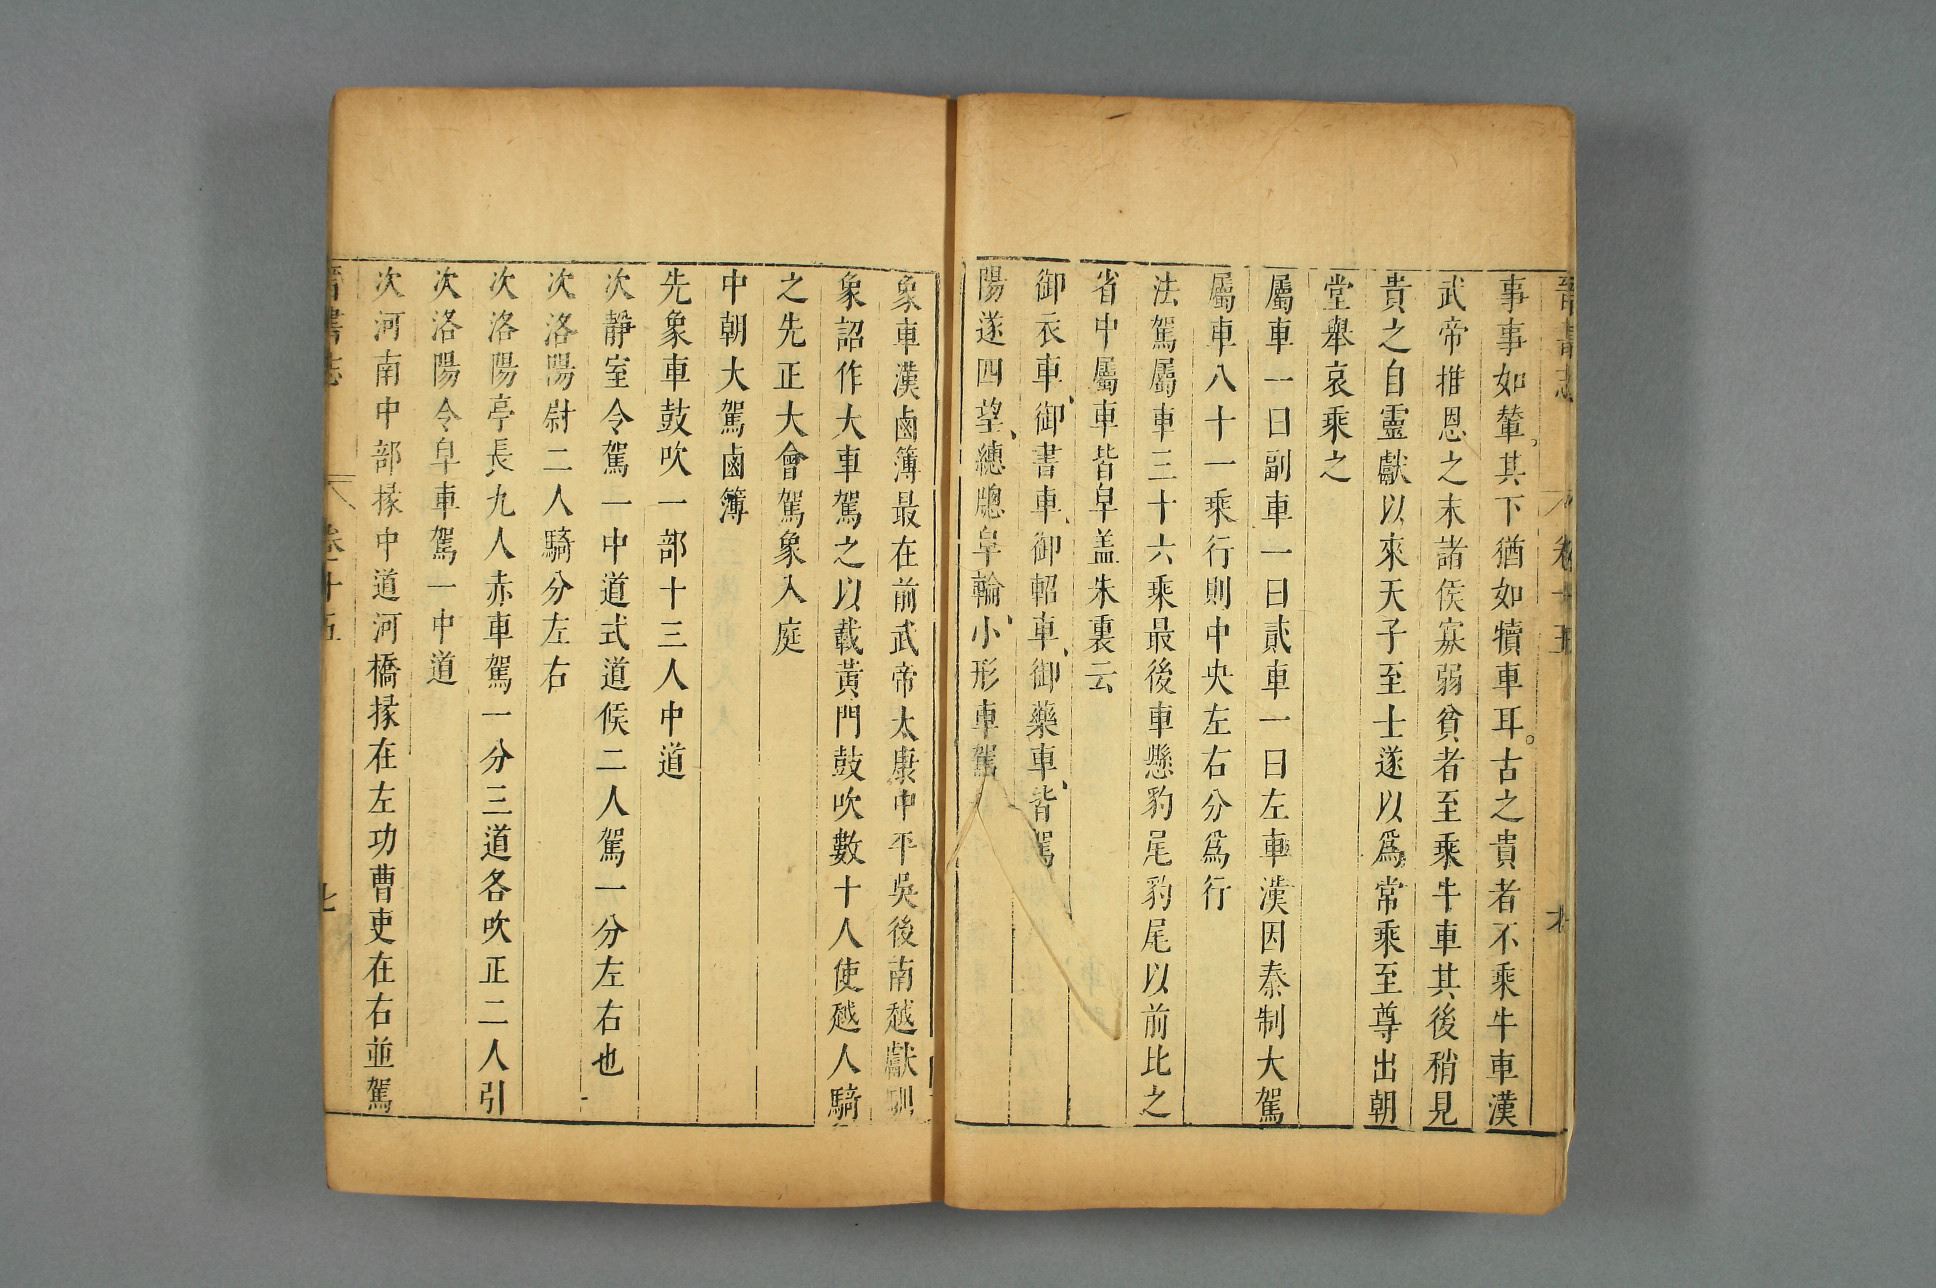 晉書志 卷十五
事事如輦其下猶如犢車耳古之貴者不乘牛車漢
武帝推恩之末諸侯寡弱貧者至乘牛車其後稍見
貴之自靈獻以來天子至士遂以爲常乘至尊出朝
堂舉哀乘之
屬車一曰副車一曰貳車一曰左車漢因秦制大駕
屬車八十一乘行則中央左右分爲行
法駕屬車三十六乘最後車懸豹尾豹尾以前比之
省中屬車皆皁盖朱裏云
御衣車御書車御軺車御藥車皆駕
陽遂四望繐牕皁輪小形車駕
象車漢鹵簿最在前武帝太康中平吳後南越獻馴
象詔作大車駕之以載黃門鼓吹數十人使越人騎
之先正大會駕象入庭
中朝大駕鹵簿
先象車鼓吹一部十三人中道
次靜室令駕一中道式道候二人駕一分左右也
次洛陽尉二人騎分左右
次洛陽亭長九人赤車駕一分三道各吹正二人引
次洛陽令皁車駕一中道
次河南中部掾中道河橋掾在左功曹吏在右並駕
晉書志 卷十五 七